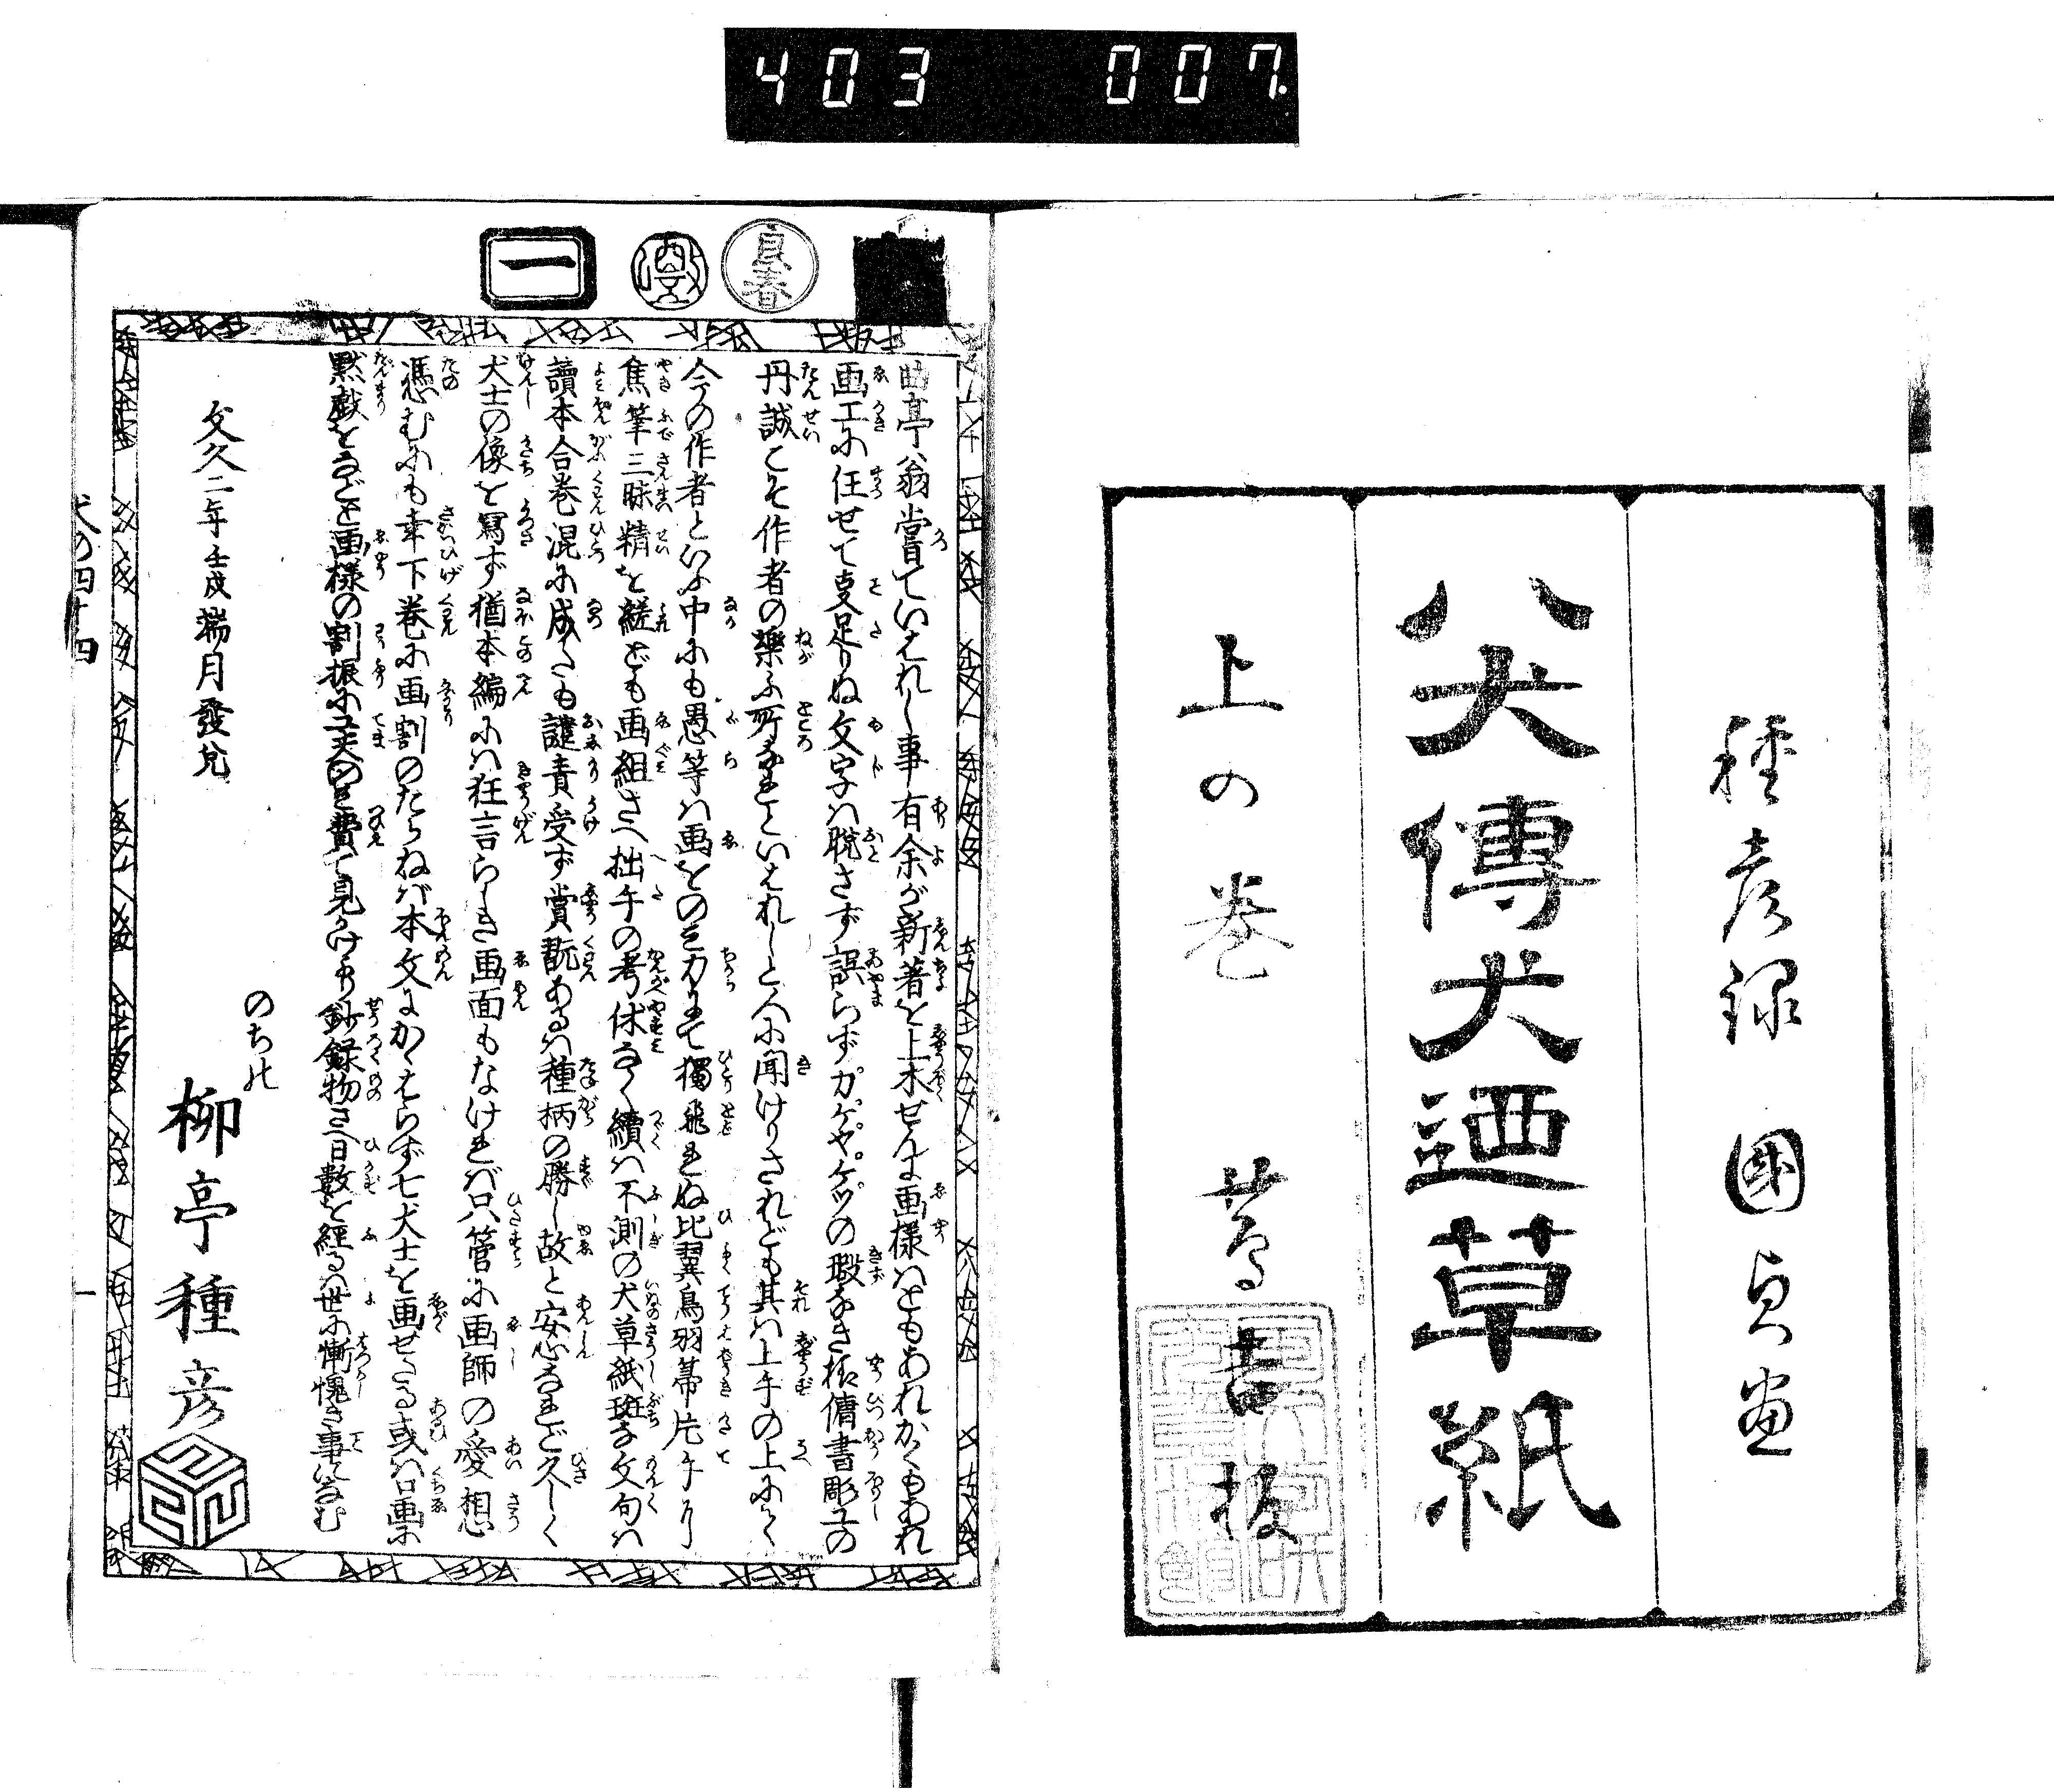 403 007.
種彦録 國貞画
八犬傳犬廼草紙
上の巻 蔦吉板
一
曲亭翁嘗ていはれし事有余が新著を上木せんに画様はともあれかくもあれ
画工に任せて支足りぬ文字は脱さず誤らず
瑕なき傭書彫工の
丹誠こそ作者の樂ふ所なれといはれしと人に聞けりされども其は上手の上にて
今の作者といふ中にも愚等は画をのみ力にて獨飛せぬ比翼鳥羽箒片手り
焦筆三昧精を縒ども画組さへ拙手の考休なく續は不測の犬草紙斑な文句は
讀本合巻混に成たも譴責受ず賞翫あるは種柄の勝し故と安心なせど久しく
犬士の像を寫ず猶本編には狂言らしき画面もなければ只管に画師の愛想
憑むにも幸下巻に画割のたらねば本文にかくはらず七犬士を画せたる或は口画に
黙戯をなどを画様の割振に工夫のみ費て見かけ
鈔録物さへ日数を經るは世に慚愧き事になむ
文久二年壬戌端月發兌
のちの
柳亭種彦
犬の四十四
一